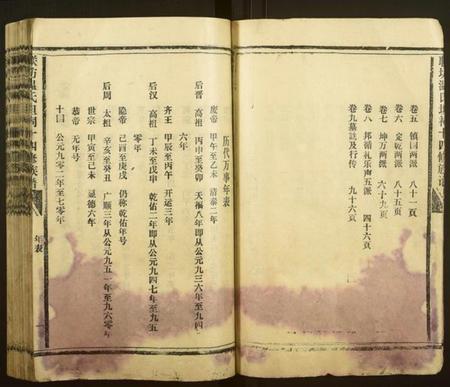 卷五 镇国两派 八十一页
卷六 定乾两派 八十五页
卷七 坤万两派 六十九页
卷八 邦循礼乐声五派 四十六页
卷九墓誌及行传 九十六页
历代万事年表
废帝 甲午至乙未 清泰二年
后晋 高祖 丙申至癸卯 天福八年即从公元九三六年至九四
六年
齐王 甲辰至丙午 开运三年
后汉 高祖 丁未至戊申 乾佑二年即从公元九四七年至九五
零年
隐帝 己酉至庚戌 仍称乾佑年号
后周 太祖 辛亥至癸丑 广顺三年从公元九五一年至九六零年
世宗 甲寅至己未 显德六年
恭帝 无年号
十国 公元九零二年至七零年
年表